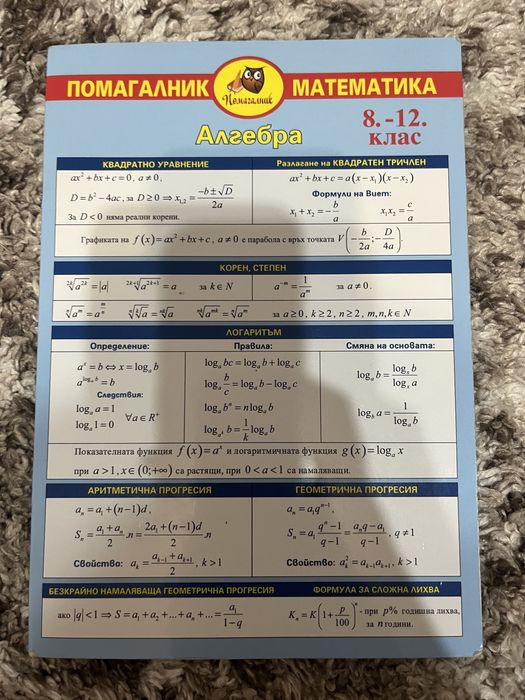 ПОМАГАЛНИК МАТЕМАТИКА
Помагалник
Алгебра
8.-12.
клас
КВАДРАТНО УРАВНЕНИЕ
ax² + bx + c = 0, a ≠ 0,
D = b² − 4ac, за D ≥ 0 ⇒ x₁,₂ = (−b ± √D)/(2a)
За D < 0 няма реални корени.
Разлагане на КВАДРАТЕН ТРИЧЛЕН
ax² + bx + c = a(x − x₁)(x − x₂)
Формули на Виет:
x₁ + x₂ = −b/a x₁x₂ = c/a
Графиката на f(x) = ax² + bx + c, a ≠ 0 е парабола с връх точката V(−b/2a; −D/4a).
КОРЕН, СТЕПЕН
²ᵏ√a²ᵏ = |a| ²ᵏ⁺¹√a²ᵏ⁺¹ = a за k ∈ N a⁻ᵐ = 1/aᵐ за a ≠ 0.
ⁿ√aᵐ = a^(m/n) ⁿ√(ᵏ√a) = ⁿᵏ√a ⁿᵏ√aᵐᵏ = ⁿ√aᵐ за a ≥ 0, k ≥ 2, n ≥ 2, m,n,k ∈ N
ЛОГАРИТЪМ
Определение:
aˣ = b ⇔ x = logₐ b
a^(logₐ b) = b
Следствия:
logₐ a = 1
logₐ 1 = 0
∀a ∈ R⁺
Правила:
logₐ bc = logₐ b + logₐ c
logₐ b/c = logₐ b − logₐ c
logₐ bⁿ = n logₐ b
log_(aᵏ) b = 1/k logₐ b
Смяна на основата:
logₐ b = logₓ b / logₓ a
log_b a = 1 / logₐ b
Показателната функция f(x) = aˣ и логаритмичната функция g(x) = logₐ x
при a > 1, x ∈ (0; +∞) са растящи, при 0 < a < 1 са намаляващи.
АРИТМЕТИЧНА ПРОГРЕСИЯ
aₙ = a₁ + (n−1)d,
Sₙ = (a₁ + aₙ)/2 .n = (2a₁ + (n−1)d)/2 .n
Свойство: aₖ = (aₖ₋₁ + aₖ₊₁)/2, k > 1
ГЕОМЕТРИЧНА ПРОГРЕСИЯ
aₙ = a₁qⁿ⁻¹,
Sₙ = a₁ (qⁿ − 1)/(q − 1) = (aₙq − a₁)/(q − 1), q ≠ 1
Свойство: aₖ² = aₖ₋₁aₖ₊₁, k > 1
БЕЗКРАЙНО НАМАЛЯВАЩА ГЕОМЕТРИЧНА ПРОГРЕСИЯ
ако |q| < 1 ⇒ S = a₁ + a₂ + ... + aₙ + ... = a₁/(1−q)
ФОРМУЛА ЗА СЛОЖНА ЛИХВА
Kₙ = K(1 + p/100)ⁿ - при p% годишна лихва,
за n години.